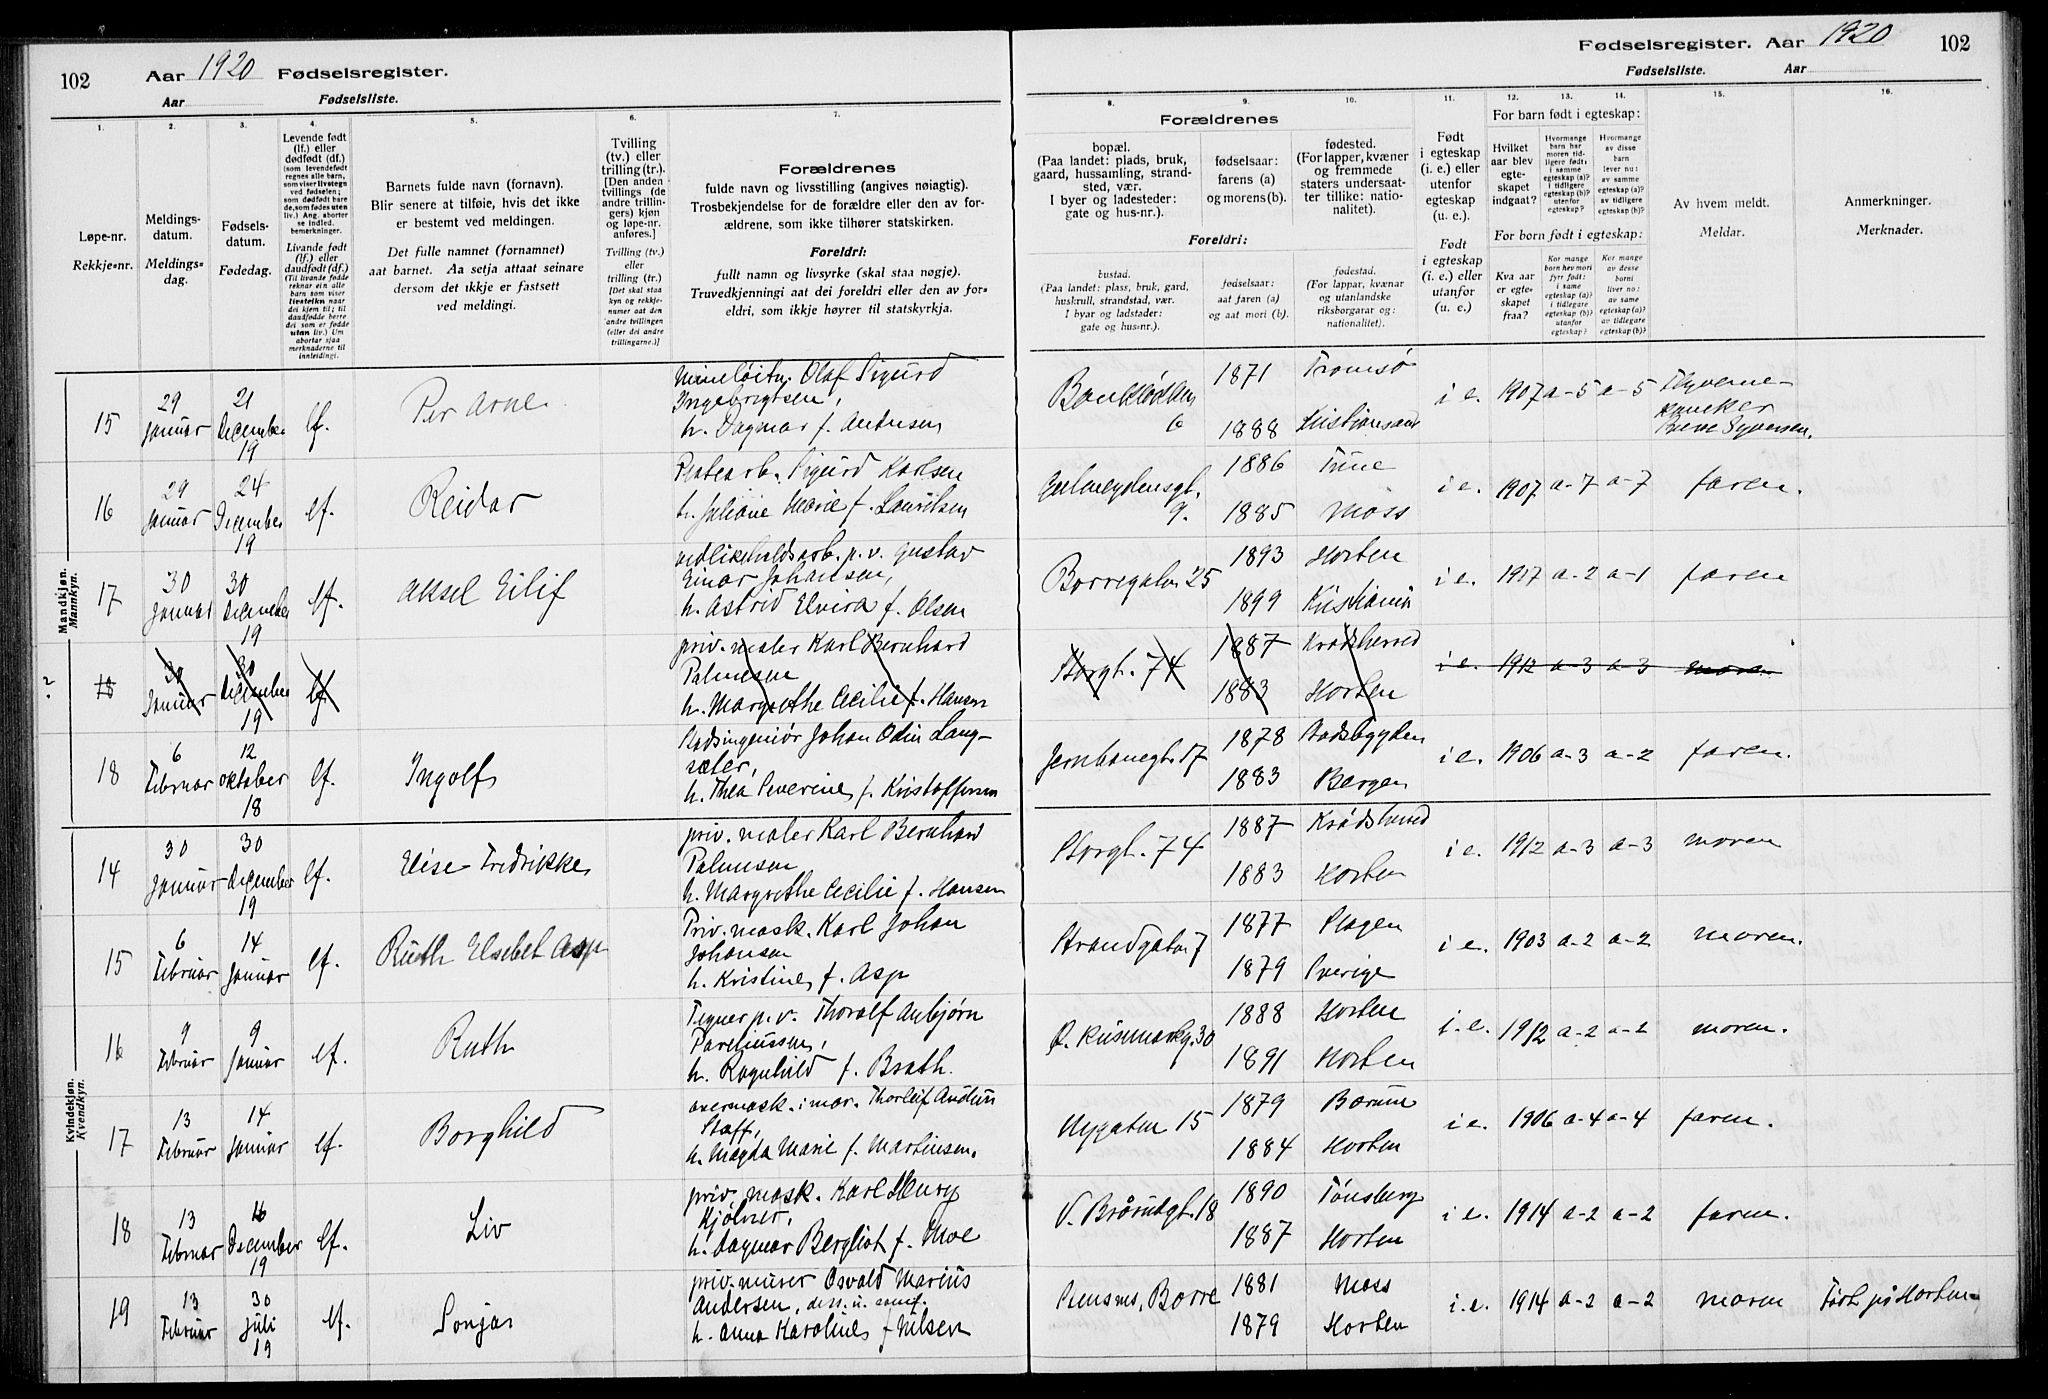 102 Aar 1920 Fødselsregister.
Aar Fødselsliste.
Fødselsregister. Aar 1920 102
Fødselsliste. Aar
1. 2. 3. 4. 5. 6. 7.
Løpe-nr.
Rekkje-nr.
Meldings-
datum.
Meldings-
dag.
Fødsels-
datum.
Fødedag.
Levende født
(lf.) eller
dødfødt (df.)
(som levendefødt
regnes alle barn,
som viser livstegn
ved fødselen;
som dødfødt bare
de, som fødes uten
liv.) Ang. aborter
se indled.
bemerkninger.
Livande født
(lf.) eller
daudfødt (df.)
(Til livande fødde
reknar ein alle
barn som viser
livsteikn naar
dei kjem til; til
daudfødde berre
dei som er fødde
utan liv.) Um
abortar sjaa
merknaderne til
innleidingi.
Barnets fulde navn (fornavn).
Blir senere at tilføie, hvis det ikke
er bestemt ved meldingen.
Det fulle namnet (fornamnet)
aat barnet. Aa setja attaat seinare
dersom det ikkje er fastsett
ved meldingi.
Tvilling
(tv.) eller
trilling (tr.).
[Den anden
tvillings (de
andre trillin-
gers) kjøn
og løpe-nr.
anføres.]
Tvilling (tv.)
eller
trilling (tr.)
[Det skal staa
kyn og rekkje-
numer aat den
andre tvillingen
(eller dei andre
trillingarne.)]
Forældrenes
fulde navn og livsstilling (angives nøiagtig).
Trosbekjendelse for de forældre eller den av for-
ældrene, som ikke tilhører statskirken.
Foreldri:
fullt namn og livsyrke (skal staa nøgje).
Truvedkjenningi aat dei foreldri eller den av for-
eldri, som ikkje høyrer til statskyrkja.
8. 9. 10. 11. 12. 13. 14. 15. 16.
Forældrenes
bopæl.
(Paa landet: plads, bruk,
gaard, hussamling, strand-
sted, vær.
I byer og ladesteder:
gate og hus-nr.).
fødselsaar:
farens (a)
og morens (b).
fødested.
(For lapper, kvæner
og fremmede
staters undersaat-
ter tillike: natio-
nalitet).
Foreldri:
bustad.
(Paa landet: plass, bruk, gard,
huskrull, strandstad, vær.
I byar og ladstader:
gate og hus-nr.).
fødselsaar:
aat faren (a)
og aat mori (b).
fødestad.
(For lappar, kvænar
og utanlandske
riksborgarar og:
nationalitet).
Født
i egteskap
(i. e.) eller
utenfor
egteskap
(u. e.).
Født
i egteskap
(i. e.) eller
utanfor
(u. e.)
For barn født i egteskap:
Hvilket
aar blev
egte-
skapet
indgaat?
Hvormange
barn har
moren tid-
ligere født:
i samme
egteskap (a)?
i tidligere
egteskap (b)?
utenfor
egteskap?
Hvormange
av disse
barn
lever nu:
av samme
egteskap (a)?
av tidligere
egteskap (b)?
For born født i egteskap:
Kva aar
er egte-
skapet
fraa?
Kor mange
born hev mori
fyrr født:
i same
egteskap (a)?
i tidlegare
egteskap (b)?
utanfor
egteskap?
Kor mange
av desse
borni
liver no:
av same
egteskap (a)?
av tidlegare
egteskap (b)?
Av hvem meldt.
Meldar.
Anmerkninger.
Merknader.
Mandkjøn.
Mannkyn.
15 29 januar 21 December 19 lf. Per Arne
Mineløitn. Olaf Sigurd
Ingebrigtsen,
h. Dagmar f. Antresen
6 1871 Tromsø
1888 Kristiansand
i e. 1907 a-5 a-5
Syversen.
16 29 Januar 24 December 19 lf. Reidar
Sigurd Karlsen
h. Juliane Marie f. Lauritsen
9. 1886 Tune
1885 Moss
i e. 1907 a-7 a-7 faren.
17 30 Januar 30 December 19 lf. Aksel Eilif
vedlikeholdsarb. p. v. Gustav
Einar Johansen,
h. Astrid Elvira f. Olsen
Borregaten 25 1893 Horten
1899 Kristiania
i e. 1917 a-2 a-1 faren
? 18 30 Januar 30 December 19 lf.
priv. maler Karl Bernhard
Palmesen
h. Margrethe Cecilie f. Hansen
Storgt. 74 1887 Krødsherred
1883 Horten
i e. 1912 a-3 a-3 moren
18 6 Februar 12 oktober 18 lf. Ingolf
Stadsingeniør Johan Odin Lang-
sæter,
h. Thea Severine f. Kristoffersen
Jernbanegt. 17 1878 Stadsbygden
1883 Bergen
i e. 1906 a-3 a-2 faren.
Kvindekjøn.
Kvendkyn.
14 30 Januar 30 December 19 lf. Elise Fredrikke
priv. maler Karl Bernhard
Palmesen
h. Margrethe Cecilie f. Hansen
Storgt. 74 1887 Krødsherred
1883 Horten
i e. 1912 a-3 a-3 moren
15 6 Februar 14 Januar lf. Ruth Elsebet Asp
Priv. mask. Karl Johan
Johansen
h. Kristine f. Asp
Strandgaten 7 1877 Slagen
1879 Sverige
i e. 1903 a-2 a-2 moren.
16 9 Februar 9 Januar lf. Ruth
Tegner p. v. Thoralf Anbjørn
Pareliussen,
h. Ragnhild f. Brath.
30 1888 Horten
1891 Horten
i. e. 1912 a-2 a-2 moren.
17 13 Februar 14 Januar lf. Borghild
overmask. i mar. Thorleif
Staff,
h. Magda Marie f. Martinsen.
Nygaten 15 1879 Bærum
1884 Horten
i e. 1906 a-4 a-4 faren.
18 13 Februar 16 December 19 lf. Liv
priv. mask. Karl Henry
Kjølner,
h. Dagmar Bergliot f. Moe
V. Bråratgt. 18 1890 Tønsberg
1887 Horten
i e. 1914 a-2 a-2 faren.
19 13 Februar 30 juli 19 lf. Sonja
priv. murer Osvald Marius
Andersen, diss. u. samf.
h. Anna Karoline f Nilsen
Borre 1881 Moss
1879 Horten
i. e. 1914 a-2 a-2 moren Født på Horten